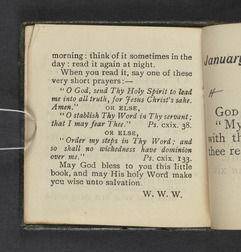 morning: think of it sometimes in the
day: read it again at night.
When you read it, say one of these
very short prayers:—
"O God, send Thy Holy Spirit to lead
me into all truth, for Jesus Christ's sake.
Amen." OR ELSE,
"O stablish Thy Word in Thy servant;
that I may fear Thee." Ps. cxix. 38.
OR ELSE,
"Order my steps in Thy Word; and
so shall no wickedness have dominion
over me." Ps. cxix. 133.
May God bless to you this little
book, and may His holy Word make
you wise unto salvation.
W. W. W.
January
GOD
"My
with th
thee re